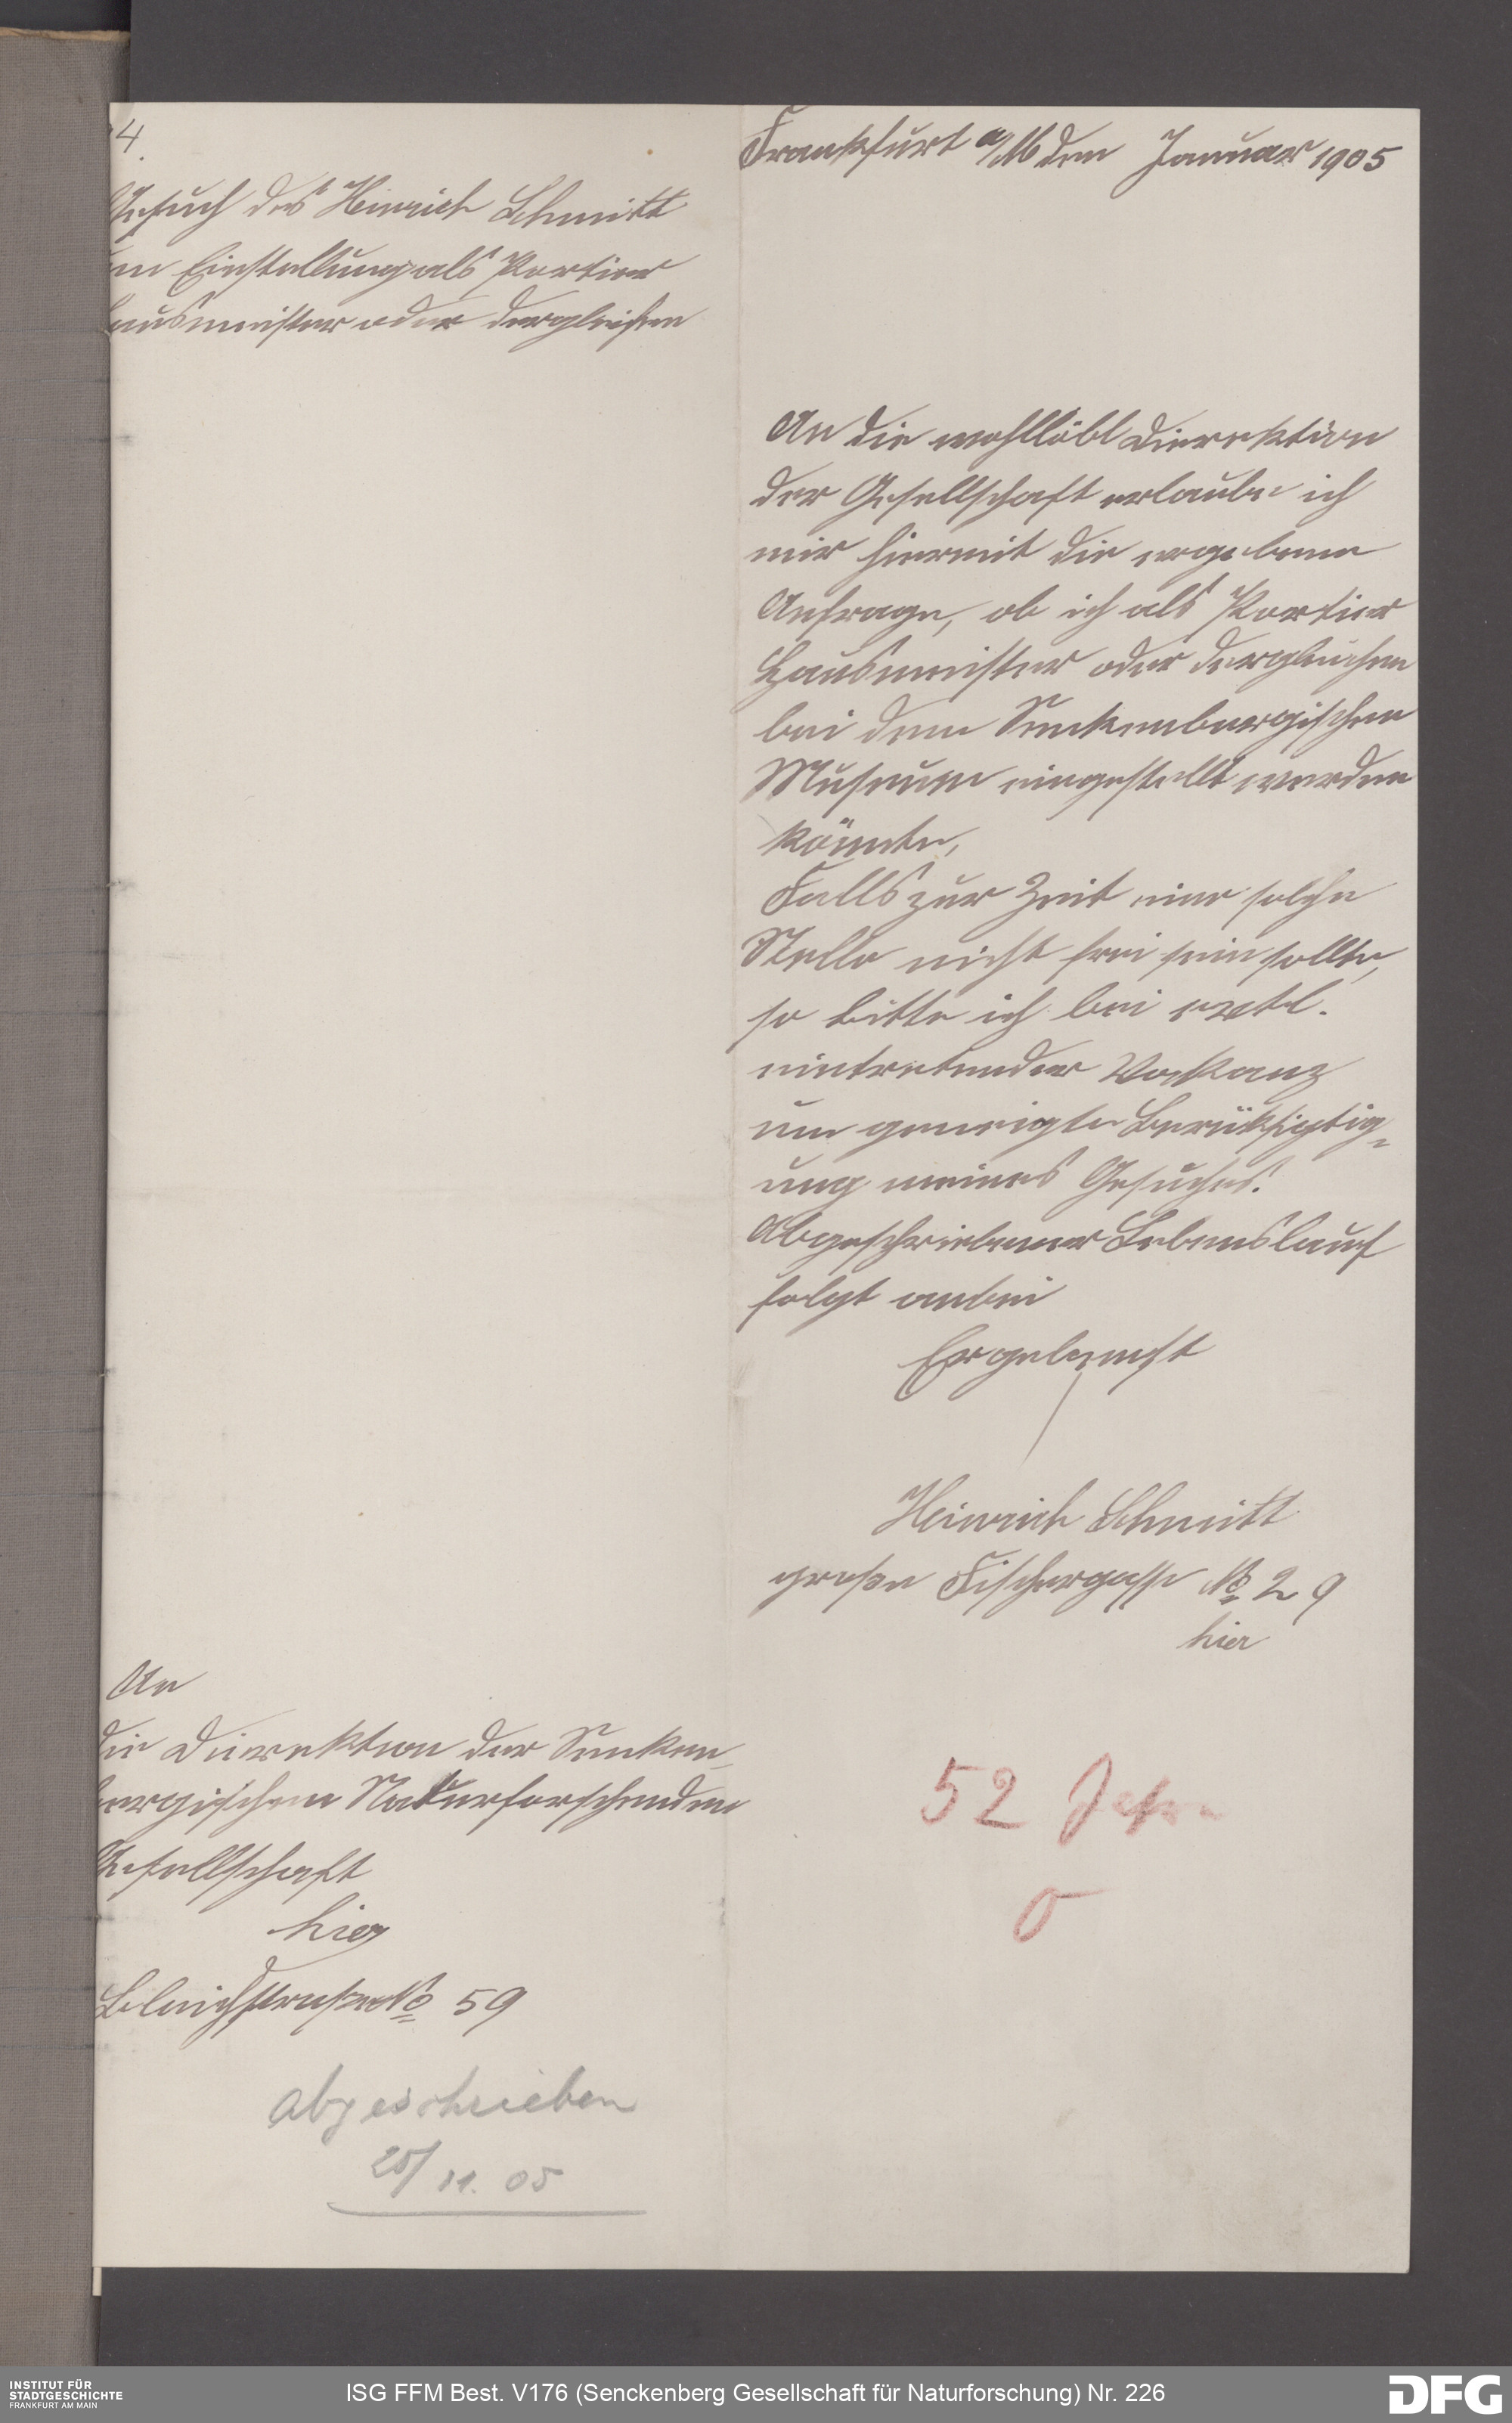 4.
Gesuch des Heinrich Schmitt
um Einstellung als Portier
Hausmeister oder dergleichen
An
die Dierektion der Senken-
bergischen Naturforschenden
Gesellschaft
hier
Bleichstraße No 59
abgeschrieben
25/11. 05
Frankfurt a/M den Januar 1905
An die wohllöbl Dierektion
der Gesellschaft erlaube ich
mir hiermit die ergebene
Anfrage, ob ich als Portier
Hausmeister oder dergleichen
bei dem Senkenbergischen
Museum eingestellt werden
könnte,
Falls zur Zeit eine solche
Stelle nicht frei sein sollte,
so bitte ich bei evtl.
eintretender Vakanz
um geneigte Berüksichtig-
ung meines Gesuches.
Abgeschriebener Lebenslauf
folgt anbei
Ergebenst
Heinrich Schmitt
große Fischergasse No 29
hier
52 Jahre
INSTITUT FÜR
STADTGESCHICHTE
FRANKFURT AM MAIN
ISG FFM Best. V176 (Senckenberg Gesellschaft für Naturforschung) Nr. 226
DFG